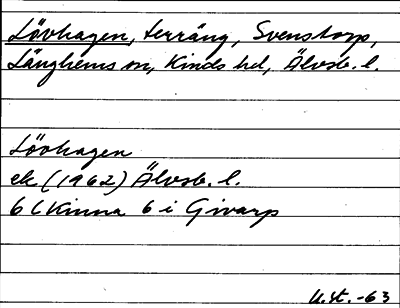 Lövhagen, terräng, Svenstorp,
Länghems sn, Kinds hd, Älvsb. l.
Lövhagen
ek (1962) Älvsb. l.
6 C Kinna 6 i Givarp
U.st. -63